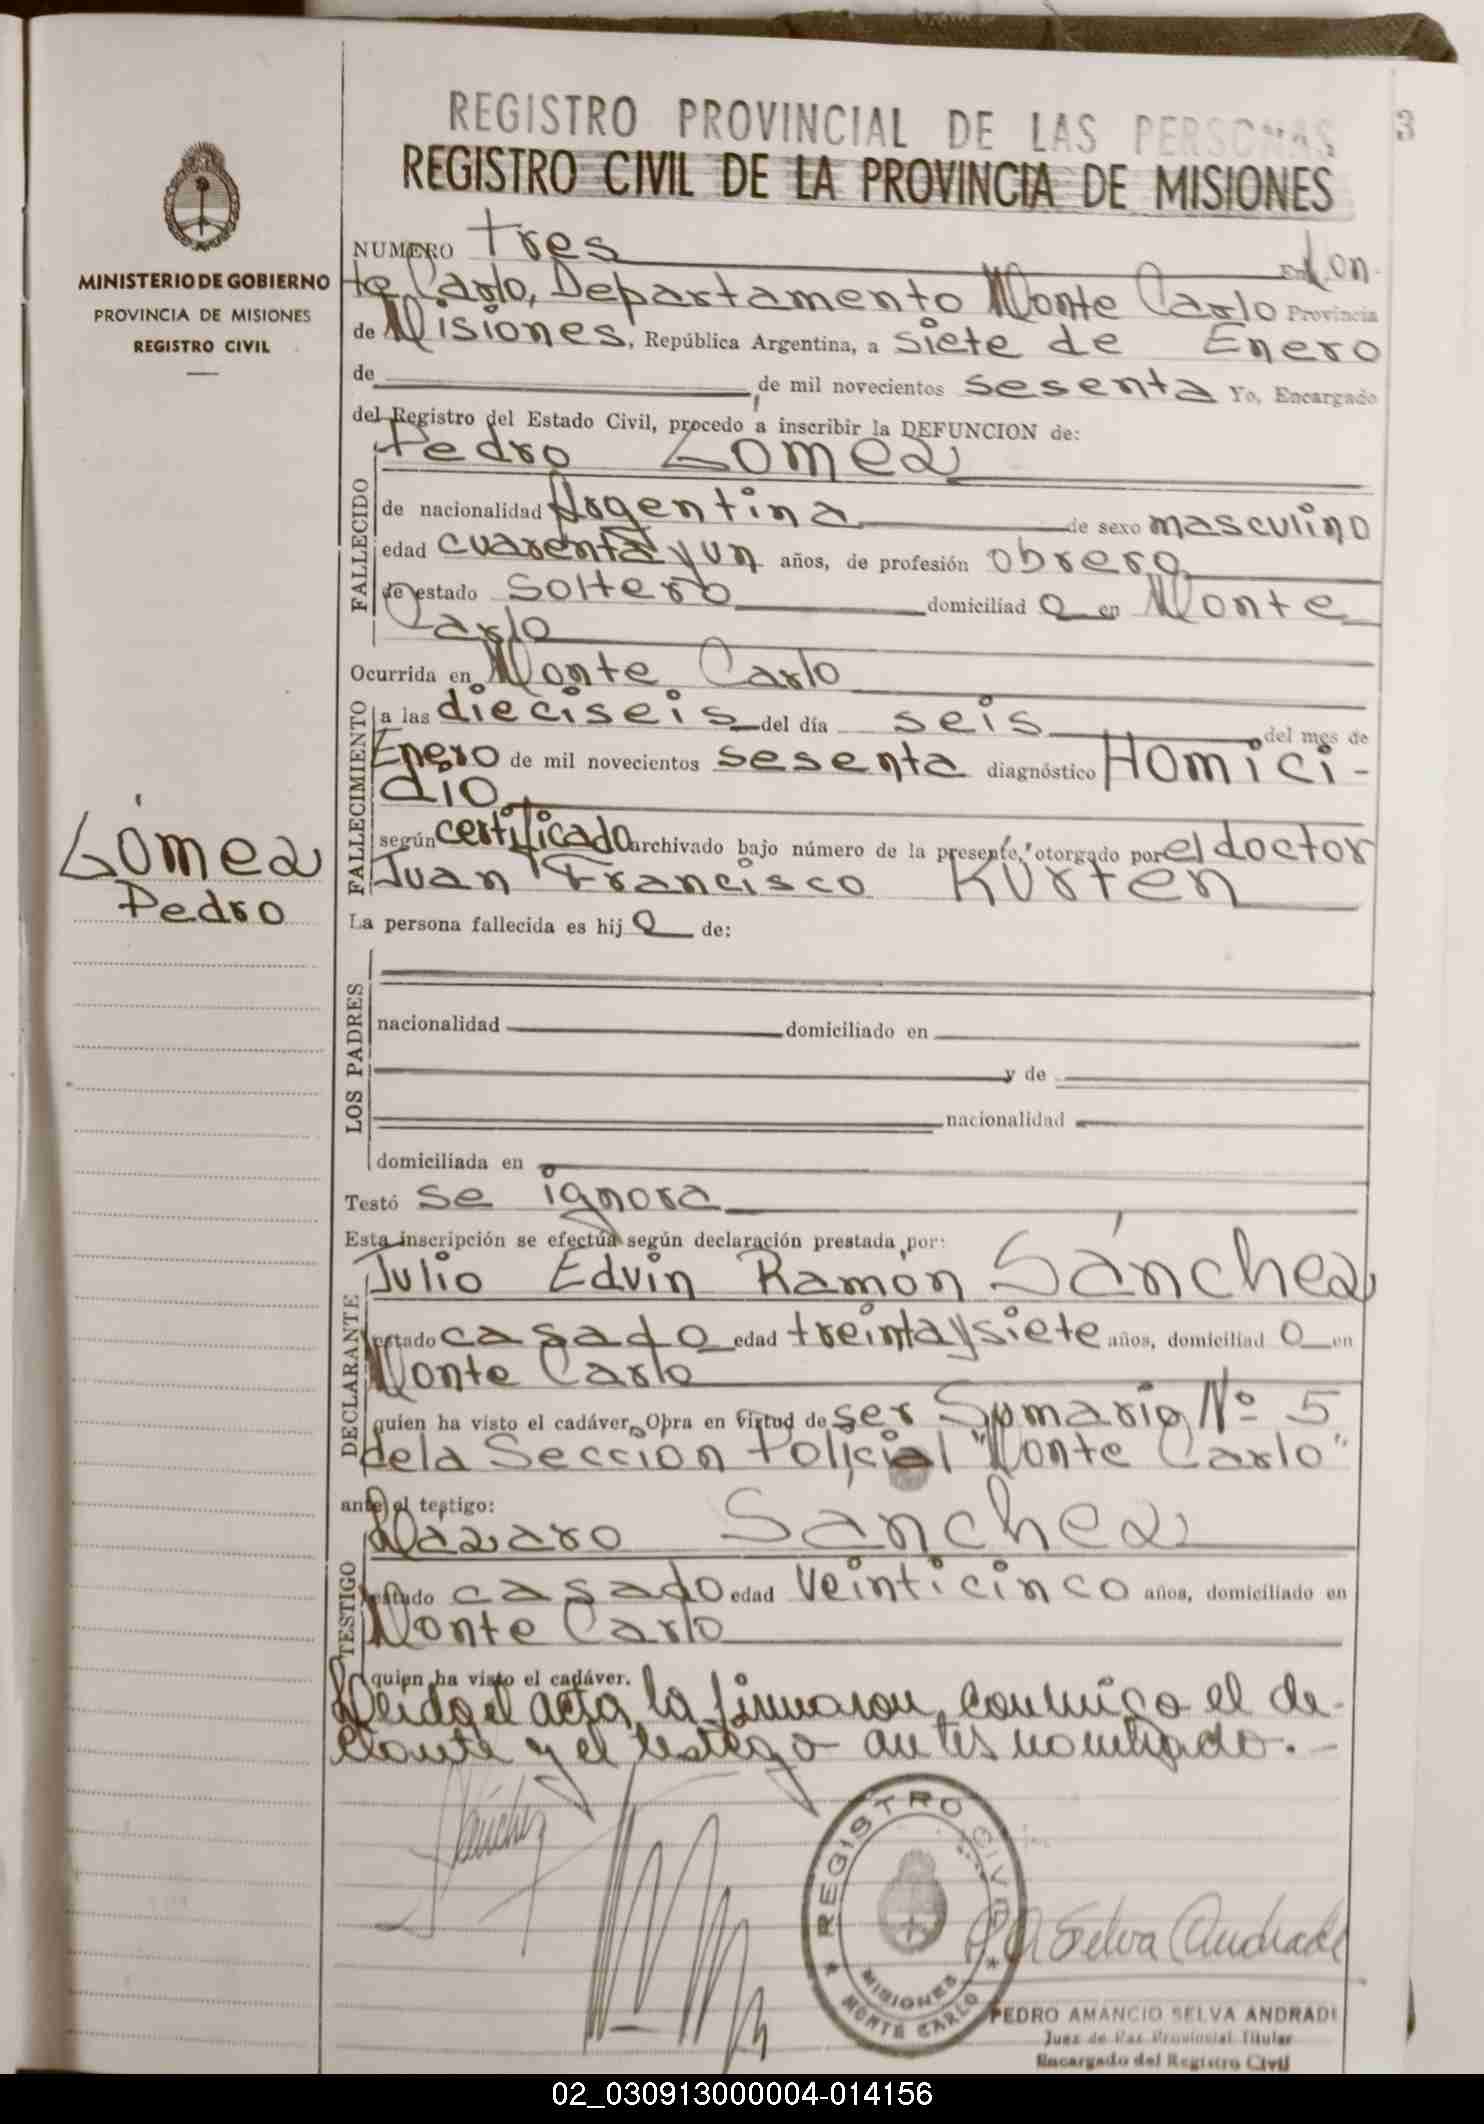 REGISTRO PROVINCIAL DE LAS PERSONAS
3
REGISTRO CIVIL DE LA PROVINCIA DE MISIONES
MINISTERIO DE GOBIERNO
PROVINCIA DE MISIONES
REGISTRO CIVIL
NUMERO tres En Mon-
te Carlo, Departamento Monte Carlo Provincia
de Misiones, República Argentina, a siete de Enero
de de mil novecientos sesenta Yo, Encargado
del Registro del Estado Civil, procedo a inscribir la DEFUNCION de:
FALLECIDO
Pedro Gomez
de nacionalidad Argentina de sexo masculino
edad cuarenta y un años, de profesión obrero
de estado soltero domiciliad o en Monte
Carlo
FALLECIMIENTO
Ocurrida en Monte Carlo
a las dieciseis del día seis del mes de
Enero de mil novecientos sesenta diagnóstico Homici-
dio
según certificado archivado bajo número de la presente, otorgado por el doctor
Juan Francisco Kürten
Gómez
Pedro
La persona fallecida es hij o de:
LOS PADRES
nacionalidad domiciliado en
y de
nacionalidad
domiciliada en
Testó se ignora
Esta inscripción se efectúa según declaración prestada por:
DECLARANTE
Julio Edvin Ramón Sánchez
estado casado edad treinta y siete años, domiciliad o en
Monte Carlo
quien ha visto el cadáver. Obra en virtud de ser Sumario Nº 5
de la Seccion Policial "Monte Carlo"
ante el testigo:
TESTIGO
Lázaro Sánchez
estado casado edad veinticinco años, domiciliado en
Monte Carlo
quien ha visto el cadáver.
Leida el acta, la firmaron conmigo el de-
clarante y el testigo antes nombrado.-
Sánchez
REGISTRO CIVIL
MISIONES
MONTE CARLO
P A Selva Andrade
PEDRO AMANCIO SELVA ANDRADE
Juez de Paz Provincial Titular
Encargado del Registro Civil
02_030913000004-014156